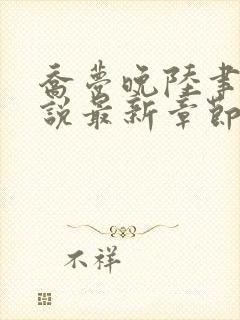 乔梦晚陆聿
說最新章節
不祥